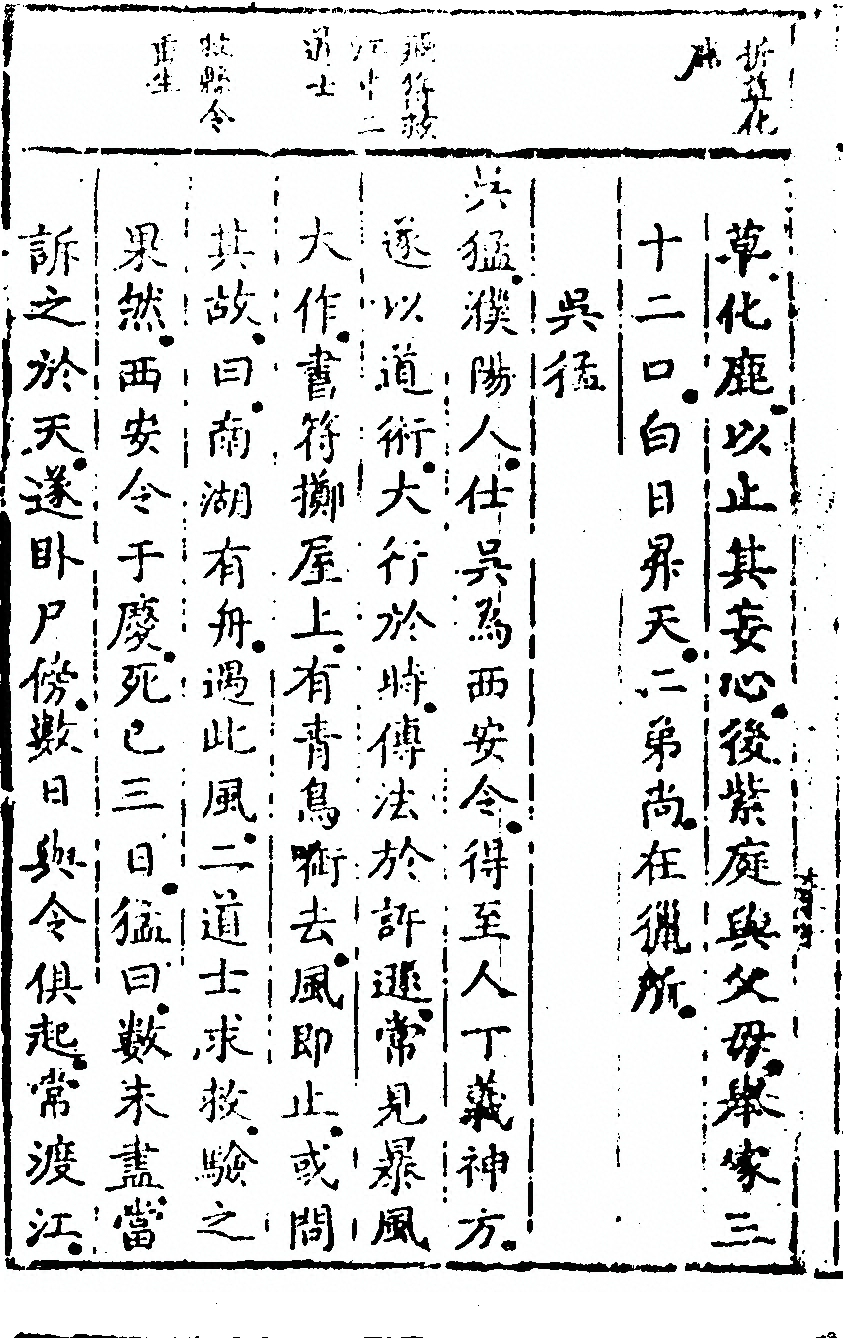 折草化
鹿
飛符救
江中二
道士
救縣令
重生
草化鹿以止其妄心後紫庭與父母舉家三
十二口白日昇天二弟尚在獵所
吳猛
吳猛濮陽人仕吳為西安令得至人丁義神方
遂以道術大行於時傳法於許遜常見暴風
大作書符擲屋上有青鳥啣去風即止或問
其故曰南湖有舟遇此風二道士求救驗之
果然西安令于慶死已三日猛曰數未盡當
訴之於天遂臥尸傍數日與令俱起常渡江